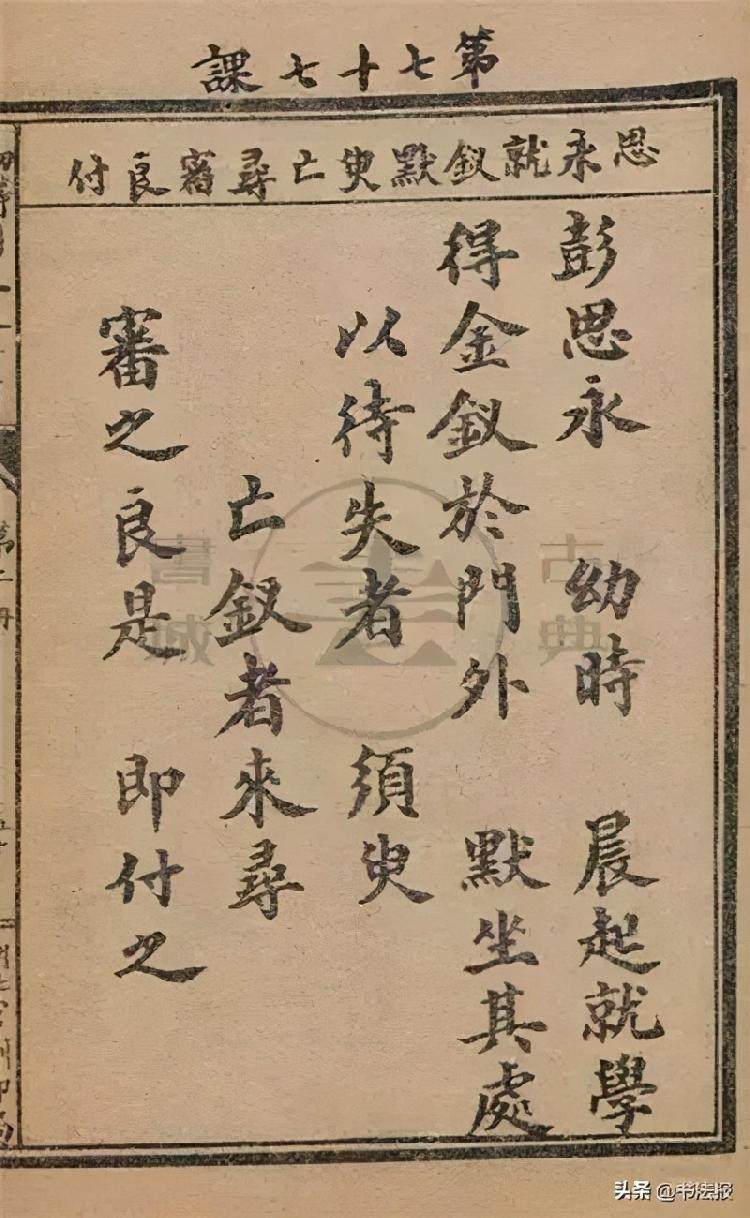 第七十七課
思永就釵默臾亡尋審良付
彭思永 幼時 晨起就學
得金釵於門外 默坐其處
以待失者 須臾
亡釵者來尋
審之良是 即付之
第二冊
古典書城
头条 @书法报